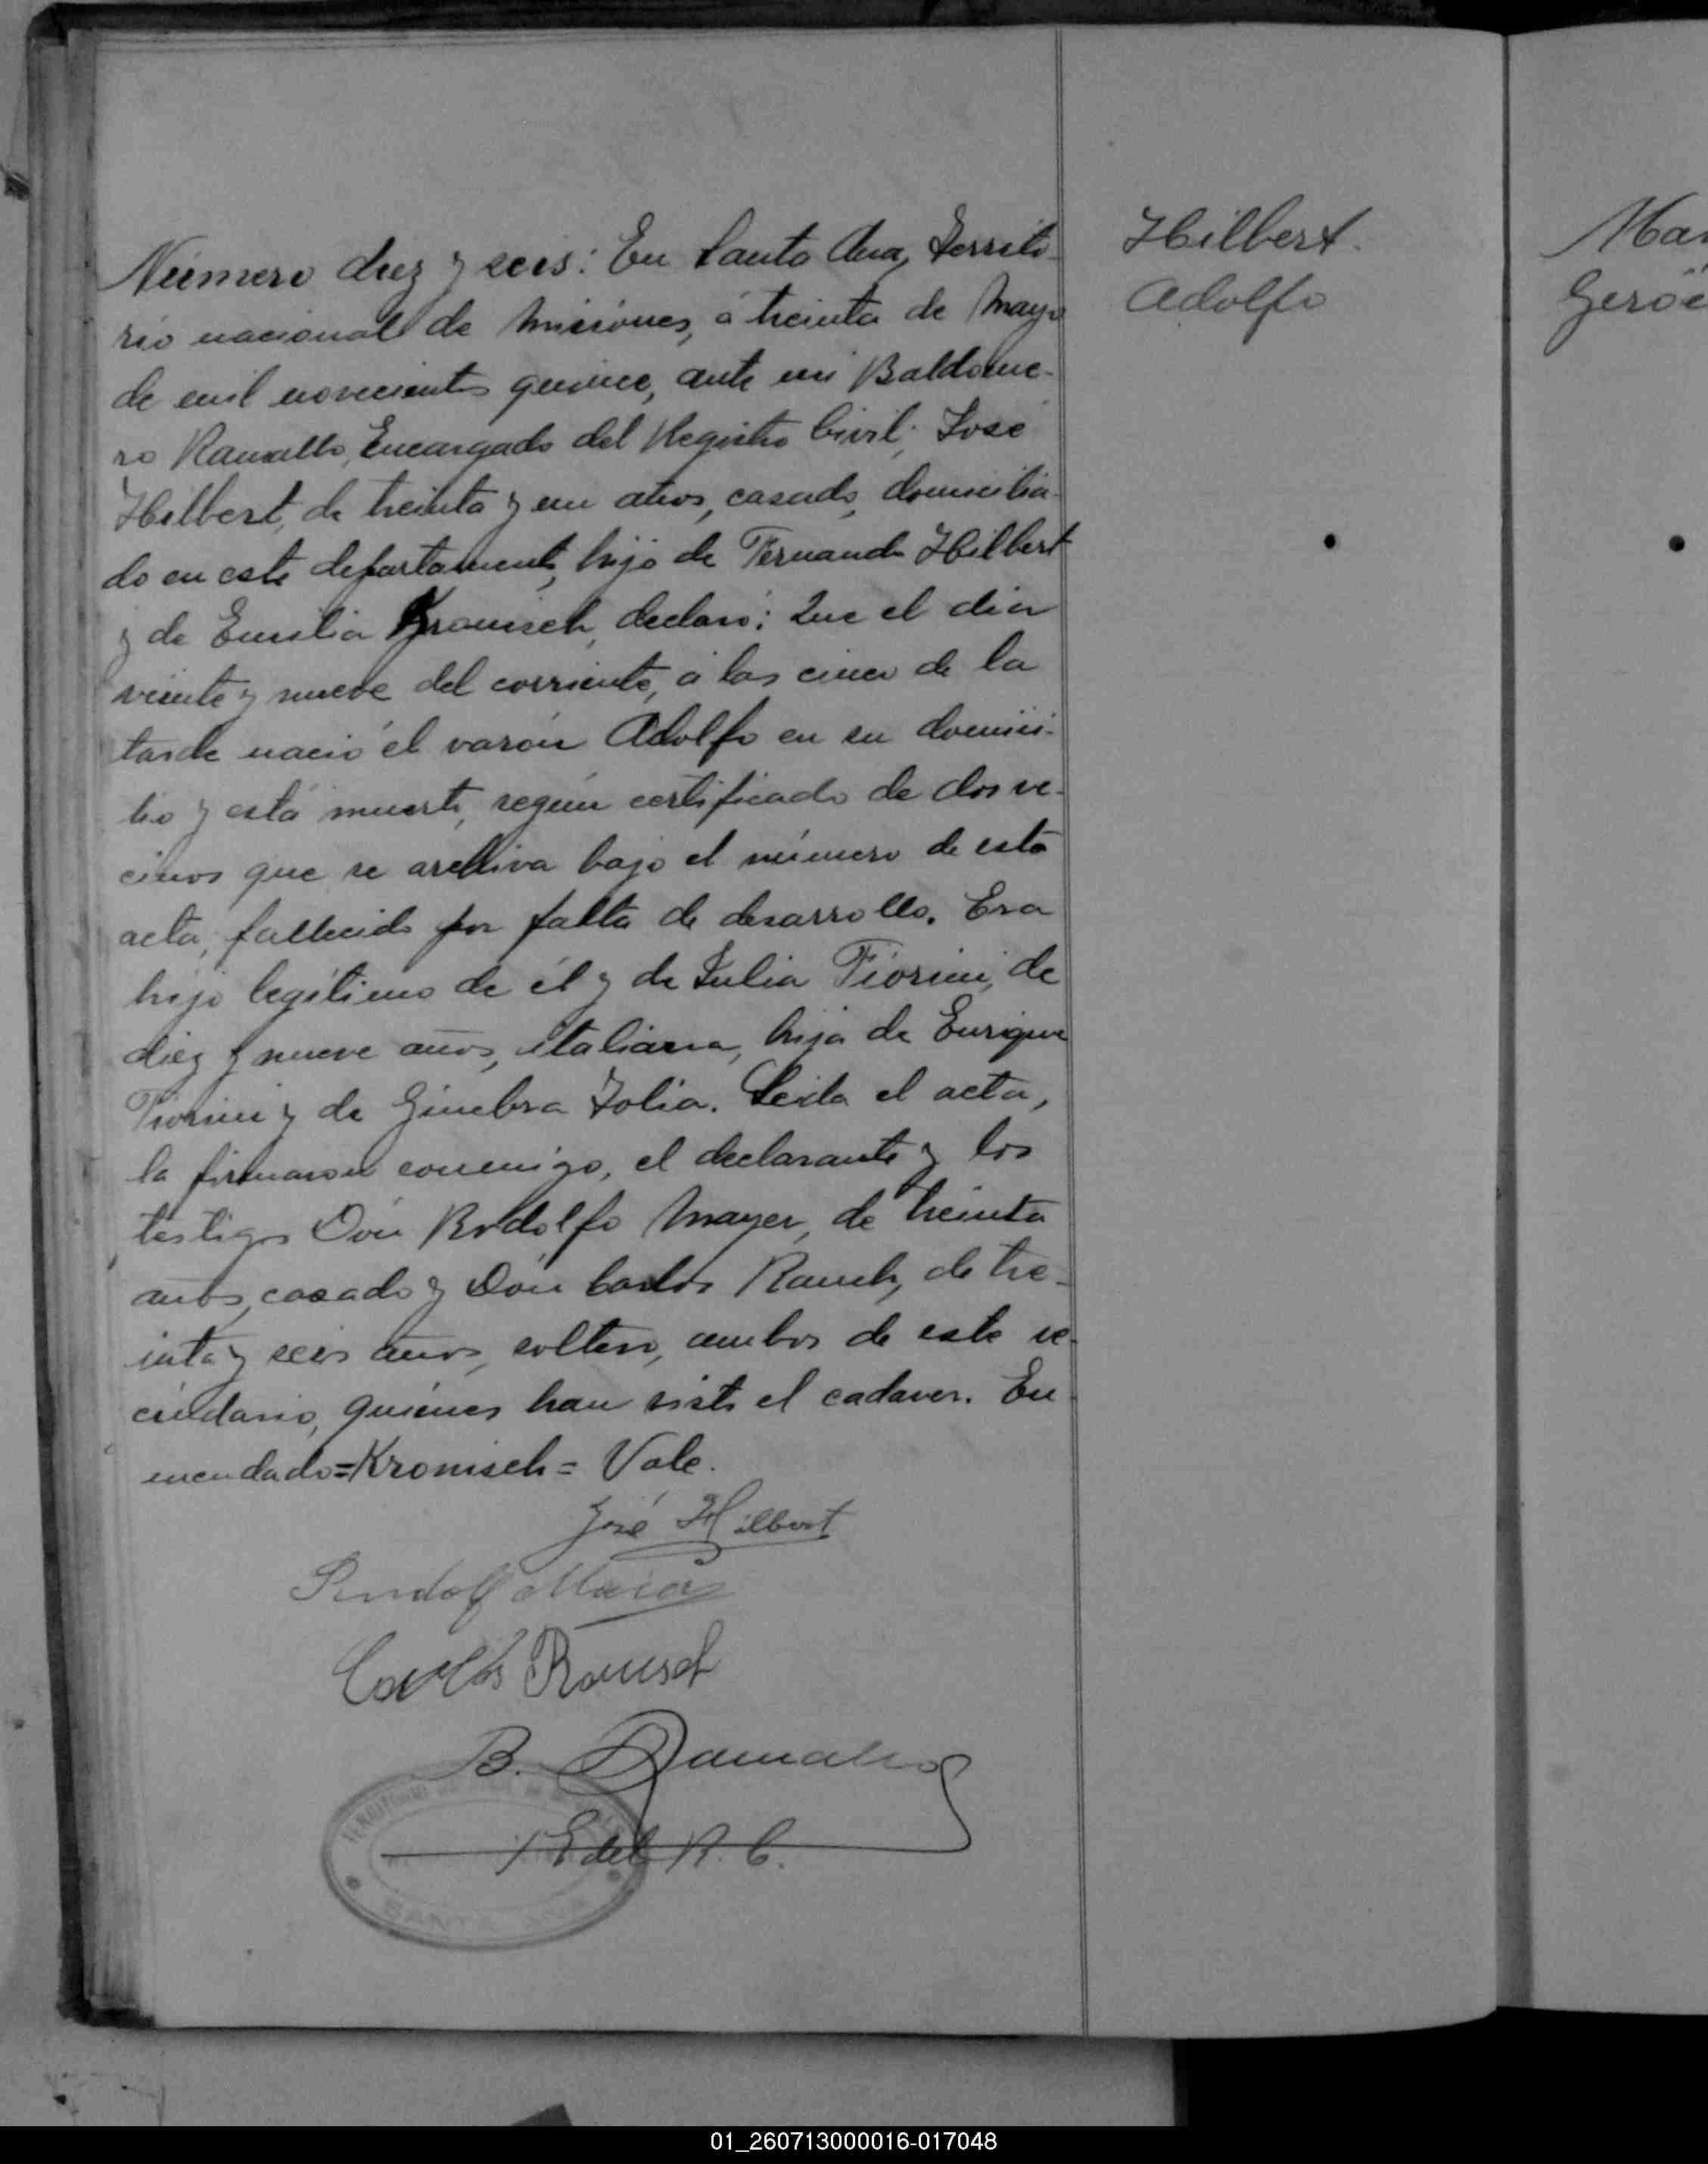 Número diez y seis: En Santa Ana, Territo-
rio nacional de Misiones, á treinta de Mayo
de mil novecientos quince, ante mi Baldome-
ro Ramallo, Encargado del Registro Civil; José
Hilbert, de treinta y un años, casado, domicilia-
do en este departamento, hijo de Fernando Hilbert
y de Emilia Kronisch, declaró: Que el dia
veinte y nueve del corriente, á las cinco de la
tarde nació el varón Adolfo en su domici-
lio y está muerto, según certificado de dos ve-
cinos que se archiva bajo el número de esta
acta, fallecido por falta de desarrollo. Era
hijo legítimo de él y de Julia Fiorini, de
diez y nueve años, italiana, hija de Enrique
Fiorini y de Ginebra Folia. Leida el acta,
la firmaron conmigo, el declarante y los
testigos Don Rodolfo Mayer, de treinta
años, casado y Don Carlos Rauch, de tre-
inta y seis años, soltero, ambos de este ve-
cindario, quienes han visto el cadaver. En
mendado=Kronisch= Vale.
José Hilbert
Rudolf
Carlos Rausch
B. Ramallo
E del R. C.
SANTA ANA
Hilbert.
Adolfo
Mar
Geró
01_260713000016-017048